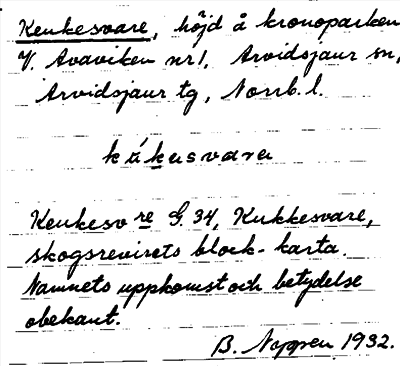 Keukesvare, höjd å kronoparken
V. Avaviken nr 1, Arvidsjaur sn,
Arvidsjaur tg, Norrb. l.
kákusvara
Keukesvre G. 34, Kukkesvare,
skogsrevirets block-karta.
Namnets uppkomst och betydelse
obekant.
B. Noppen 1932.